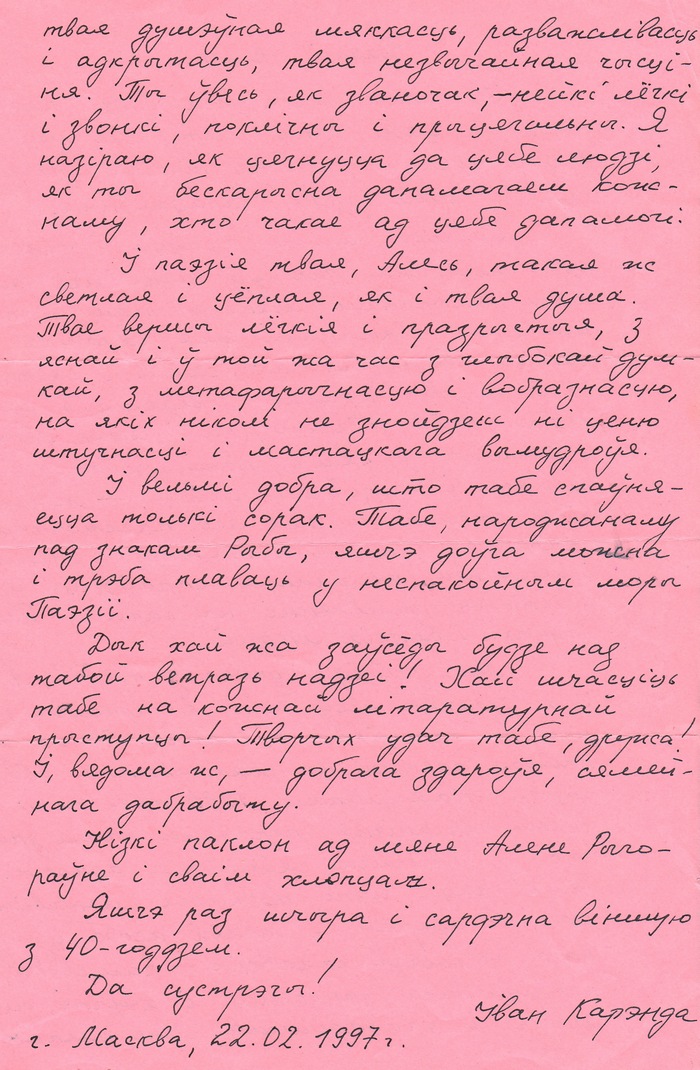 твая душэўная мяккасць, разважлівасць
і адкрытасць, твая незвычайная чысці-
ня. Ты ўвесь, як званочак, – нейкі лёгкі
і звонкі, поклічны і прыцягальны. Я
назіраю, як цягнуцца да цябе людзі,
як ты бескарысна дапамагаеш кож-
наму, хто чакае ад цябе дапамогі.
І паэзія твая, Алесь, такая ж
светлая і цёплая, як і твая душа.
Твае вершы лёгкія і празрыстыя, з
яснай і ў той жа час з глыбокай дум-
кай, з метафарычнасцю і вобразнасцю,
на якіх ніколі не знойдзеш ні ценю
штучнасці і мастацкага вымудроўя.
І вельмі добра, што табе спаўня-
ецца толькі сорак. Табе, народжанаму
пад знакам Рыбы, яшчэ доўга можна
і трэба плаваць у неспакойным моры
Паэзіі.
Дык хай жа заўсёды будзе над
табой ветразь надзеі! Хай шчасціць
табе на кожнай літаратурнай
прыступцы! Творчых удач табе, дружа!
І, вядома ж, — добрага здароўя, сямей-
нага дабрабыту.
Нізкі паклон ад мяне Алене Рыго-
раўне і сваім хлопцам.
Яшчэ раз шчыра і сардэчна віншую
з 40-годдзем.
Да сустрэчы!
Іван Карэнда
г. Масква, 22.02.1997г.